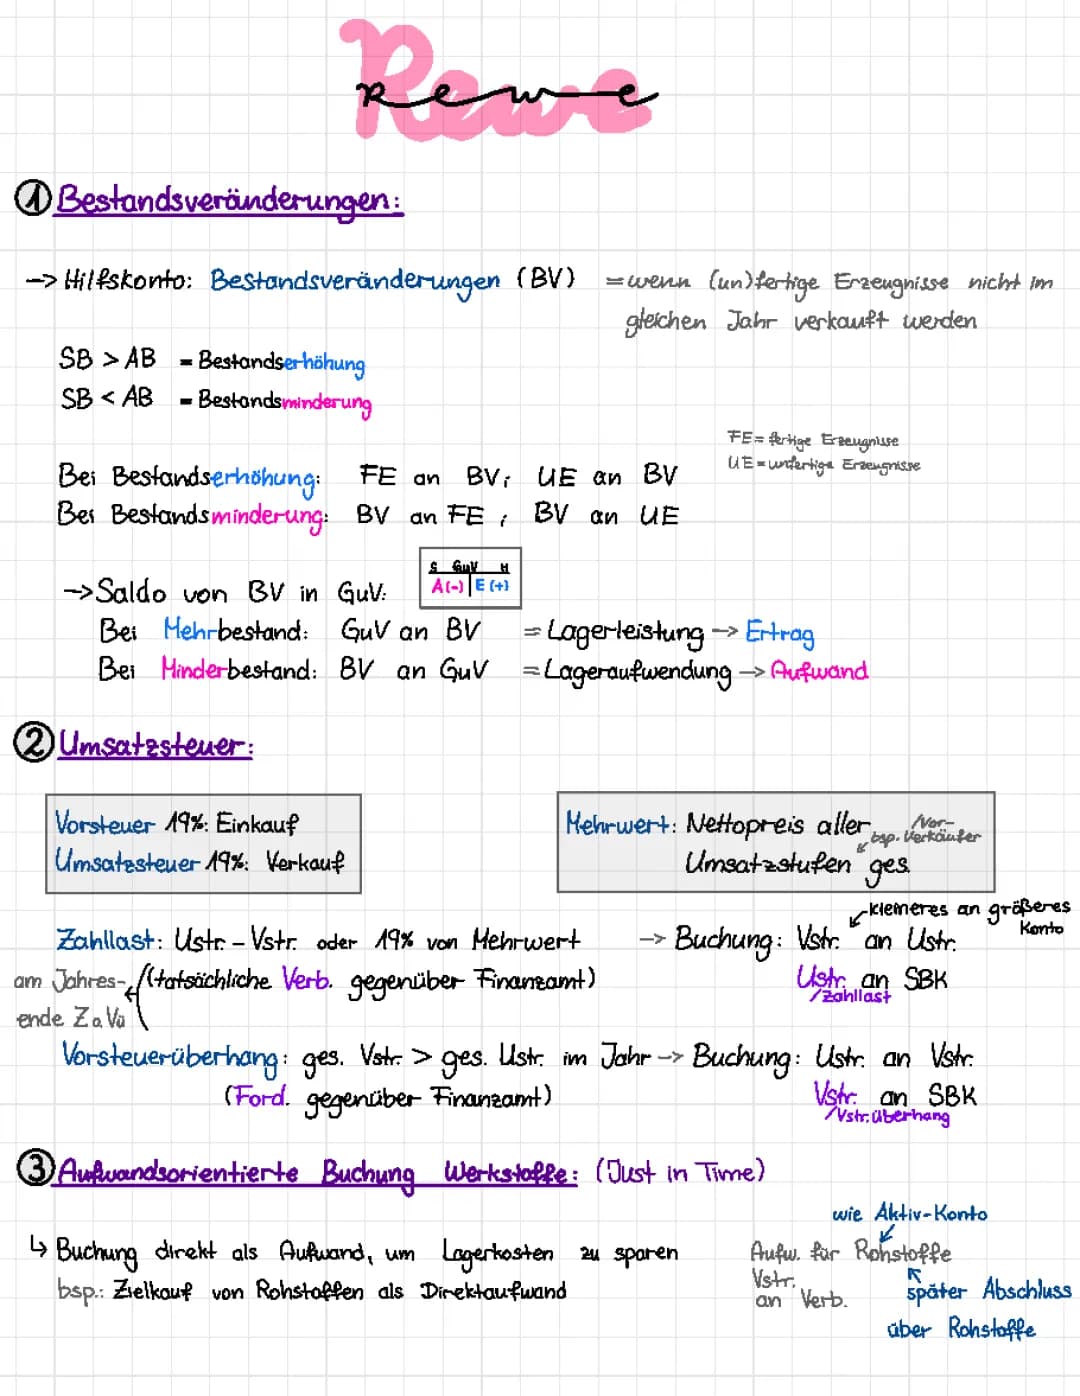 Rewe
① Bestandsveränderungen:
-> Hilfskonto: Bestandsveränderungen (BV) = wenn (un)fertige Erzeugnisse nicht im
gleichen Jahr verkauft werden
SB > AB = Bestandserhöhung
SB < AB = Bestandsminderung
FE = fertige Erzeugnisse
UE = unfertige Erzeugnisse
Bei Bestandserhöhung: FE an BV; UE an BV
Bei Bestandsminderung: BV an FE; BV an UE
S GuV H
A(-) | E (+)
-> Saldo von BV in GuV:
Bei Mehrbestand: GuV an BV = Lagerleistung -> Ertrag
Bei Minderbestand: BV an GuV = Lageraufwendung -> Aufwand
② Umsatzsteuer:
Vorsteuer 19%: Einkauf
Umsatzsteuer 19%: Verkauf
Mehrwert: Nettopreis aller /Vor-
bsp. Verkäufer
Umsatzstufen ges.
kleineres an größeres
Konto
Zahllast: Ustr. - Vstr. oder 19% von Mehrwert -> Buchung: Vstr. an Ustr.
am Jahres- (tatsächliche Verb. gegenüber Finanzamt) Ustr. an SBK
/Zahllast
ende Z o. Vü
Vorsteuerüberhang: ges. Vstr. > ges. Ustr. im Jahr -> Buchung: Ustr. an Vstr.
(Ford. gegenüber Finanzamt) Vstr. an SBK
/Vstr.überhang
③ Aufwandsorientierte Buchung Werkstoffe: (Just in Time)
wie Aktiv-Konto
↳ Buchung direkt als Aufwand, um Lagerkosten zu sparen Aufw. für Rohstoffe
bsp.: Zielkauf von Rohstoffen als Direktaufwand Vstr.
an Verb.
später Abschluss
über Rohstoffe